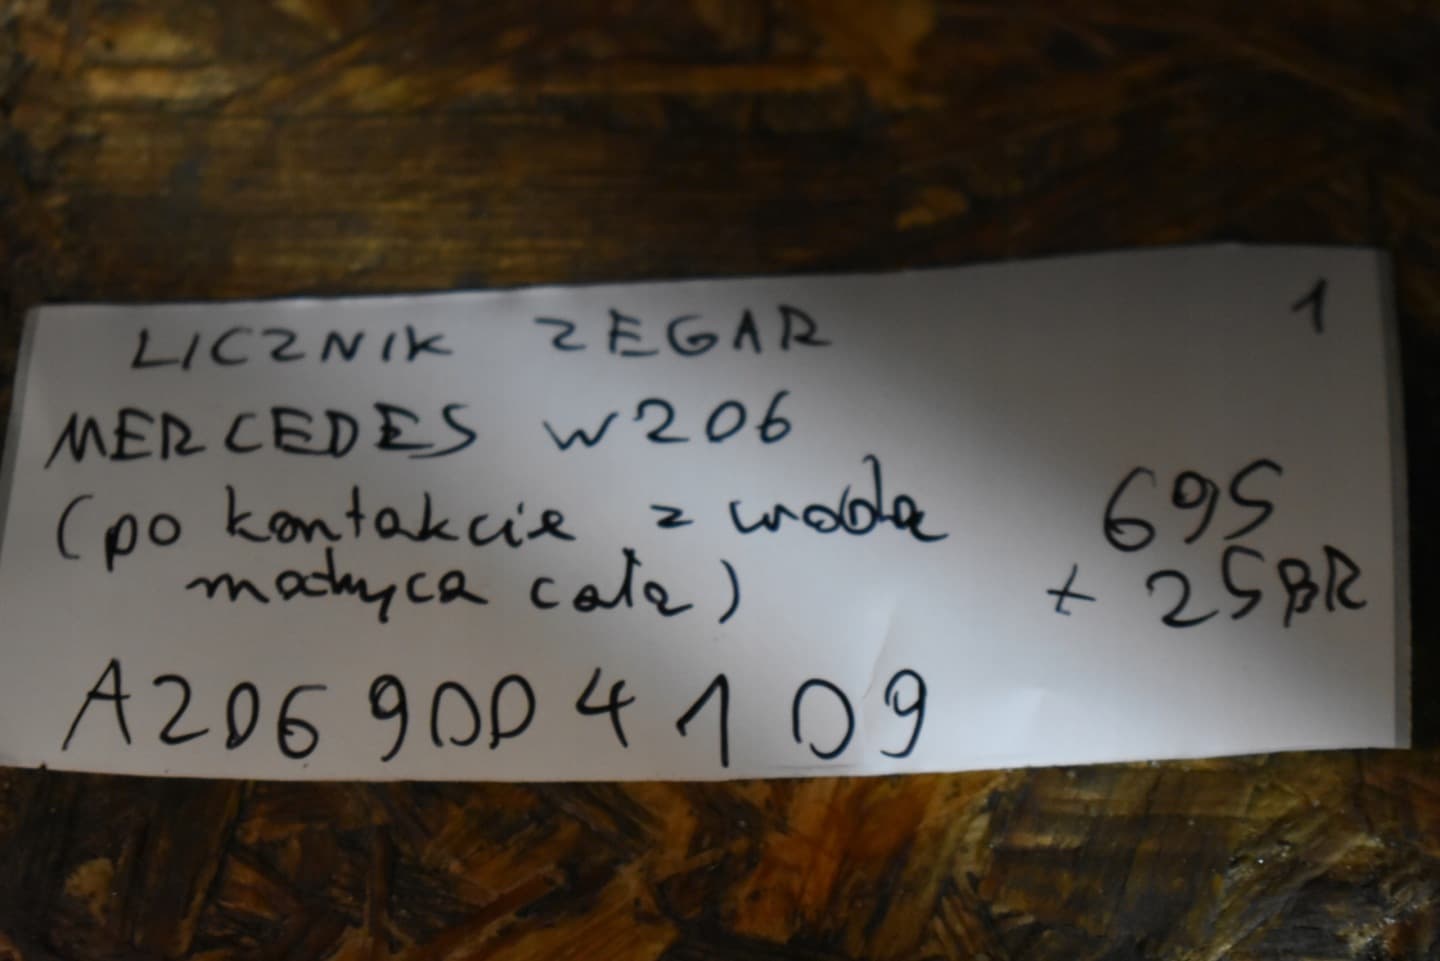 LICZNIK ZEGAR 1
MERCEDES W206
(po kontakcie z wodą 695
matryca cała) + 25BR
A2069004109